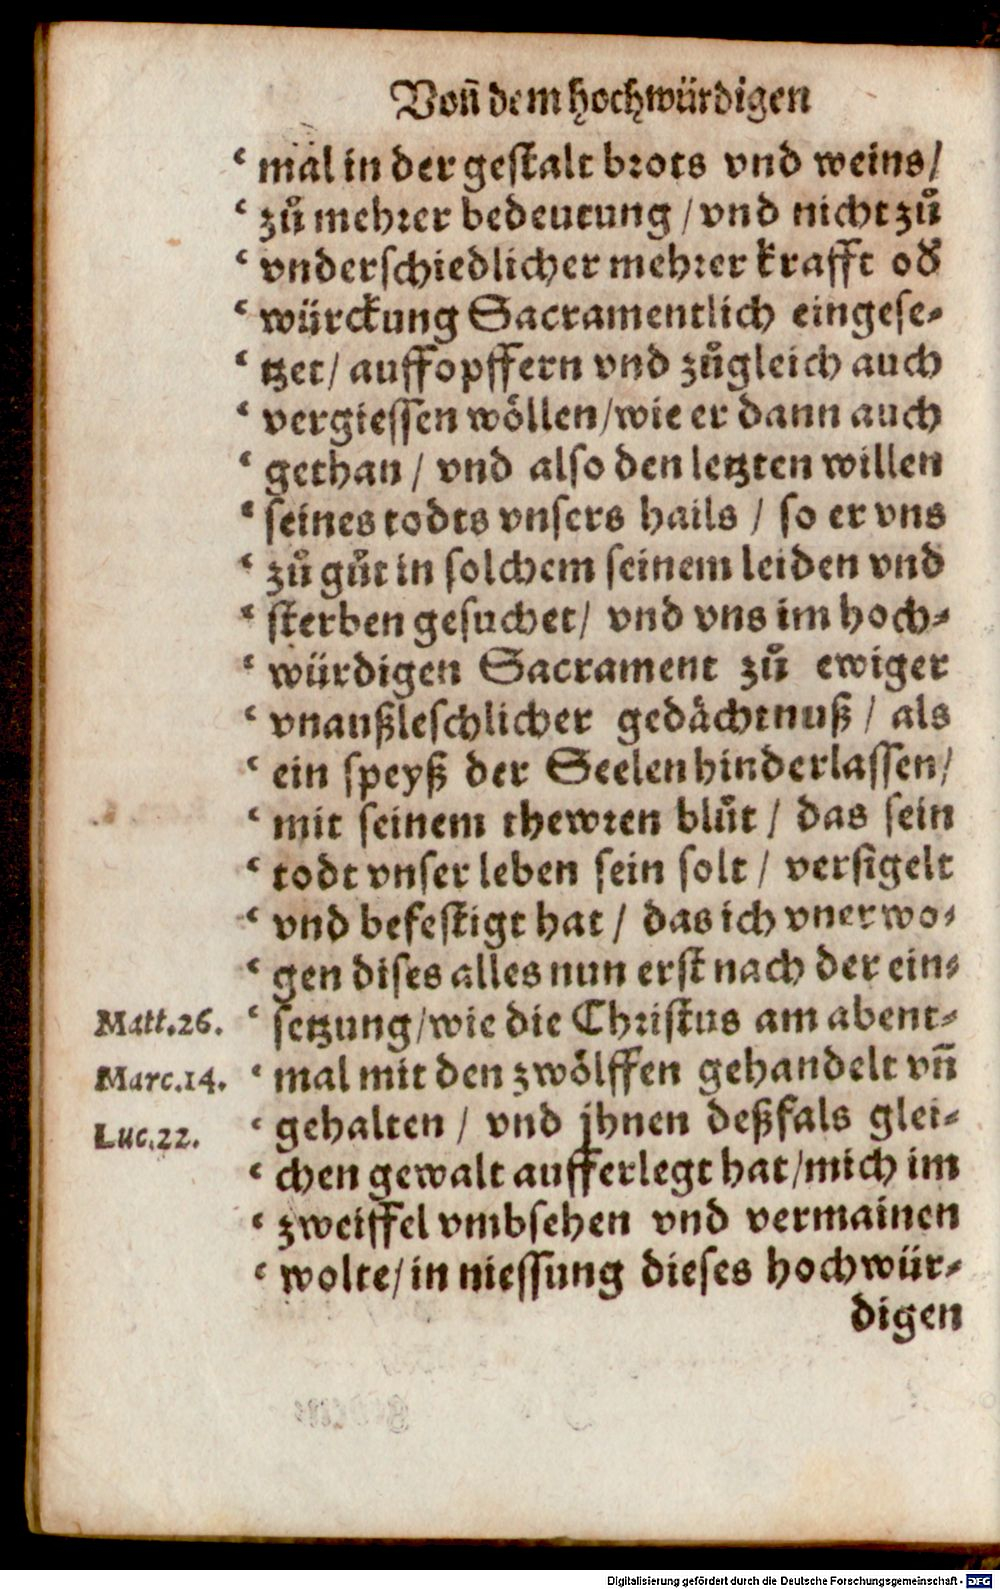 Von̄ dem hochwürdigen
‘ mal in der gestalt brots vnd weins /
‘ zů mehrer bedeutung / vnd nicht zů
‘ vnderschiedlicher mehrer krafft od̕
‘ würckung Sacramentlich eingese-
‘ tzet / auffopffern vnd zůgleich auch
‘ vergiessen wöllen / wie er dann auch
‘ gethan / vnd also den letzten willen
‘ seines todts vnsers hails / so er vns
‘ zů gůt in solchem seinem leiden vnd
‘ sterben gesuchet / vnd vns im hoch-
‘ würdigen Sacrament zů ewiger
‘ vnaußleschlicher gedächtnuß / als
‘ ein speyß der Seelen hinderlassen /
‘ mit seinem thewren blůt / das sein
‘ todt vnser leben sein solt / versigelt
‘ vnd befestigt hat / das ich vnerwo-
‘ gen dises alles nun erst nach der ein-
Matt.26. ‘ setzung / wie die Christus am abent-
Marc.14. ‘ mal mit den zwölffen gehandelt vn̄
Luc.22. ‘ gehalten / vnd jhnen deßfals glei-
‘ chen gewalt aufferlegt hat / mich im
‘ zweiffel vmbsehen vnd vermainen
‘ wolte / in niessung dieses hochwür-
digen
Digitalisierung gefördert durch die Deutsche Forschungsgemeinschaft - DFG